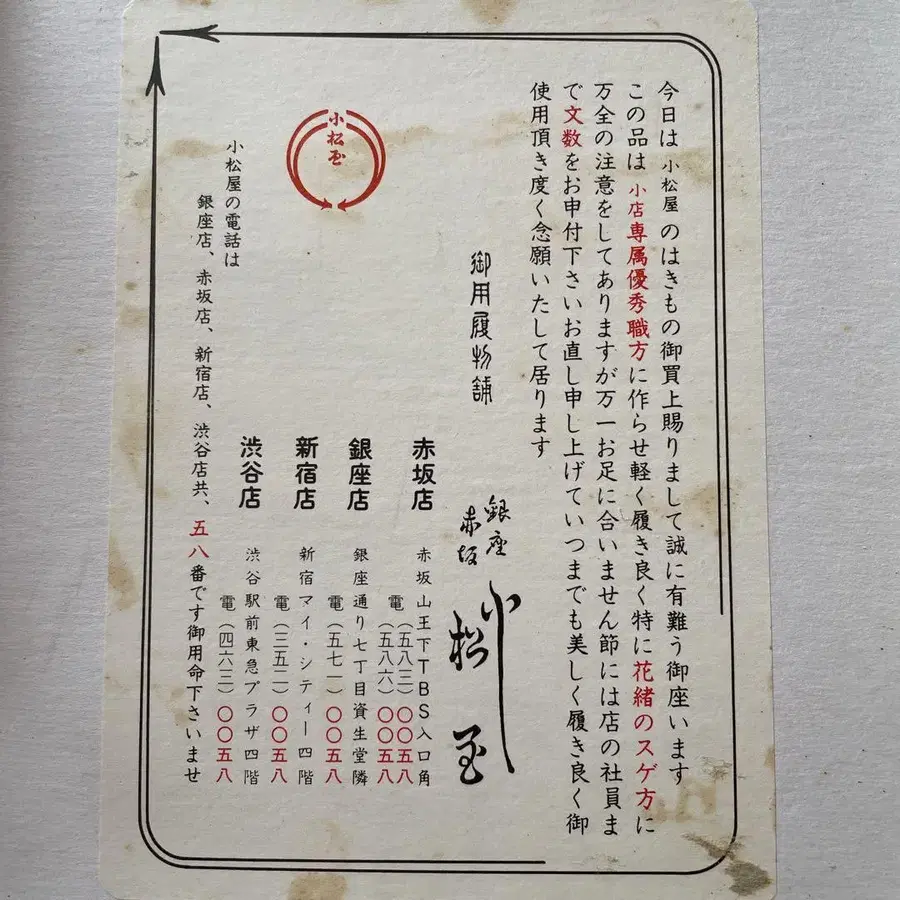 今日は 小松屋 のはきもの御買上賜りまして誠に有難う御座います
この品は 小店専属優秀職方に作らせ軽く履き良く特に花緒のスゲ方に
万全の注意をしてありますが万一お足に合いません節には店の社員ま
で文数をお申付下さいお直し申し上げていつまでも美しく履き良く御
使用頂き度く念願いたして居ります
御用履物舗
銀座
赤坂
小松屋
赤坂店
赤坂山王下TBS入口角
電(五八三)〇〇五八
(五八六)〇〇五八
銀座店
銀座通り七丁目資生堂隣
電(五七一)〇〇五八
新宿店
新宿マイ・シティー四階
電(三五二)〇〇五八
渋谷店
渋谷駅前東急プラザ四階
電(四六三)〇〇五八
小松屋
小松屋の電話は
銀座店、赤坂店、新宿店、渋谷店共、五八番です御用命下さいませ